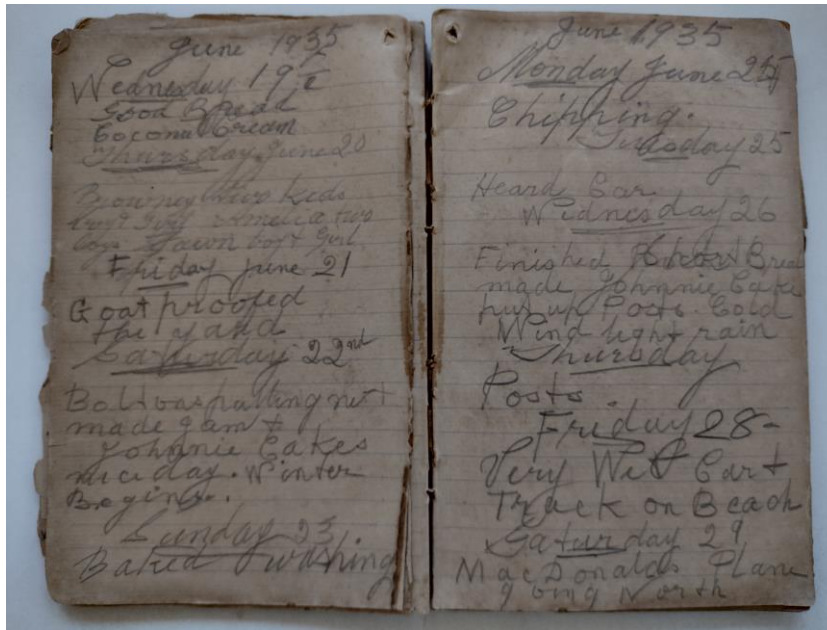 June 1935
Wednesday 19th
Good Bread
Coconut Cream
Thursday June 20
Browney two kids
boy & Girl Amelia two
boys Fawn boy & Girl
Friday June 21
Goat proofed
the yard
Saturday 22nd
putting net
made jam +
Johnnie Cakes
nice day. Winter
Begins.
Sunday 23
Baked & washing
June 1935
Monday June 24
Chipping.
Tuesday 25
Heard Car
Wednesday 26
Finished Bread
made Johnnie Cake
put up Posts. Cold
Wind light rain
Thursday
Posts
Friday 28-
Very Wet Car +
Track on Beach
Saturday 29
MacDonalds Plane
going North